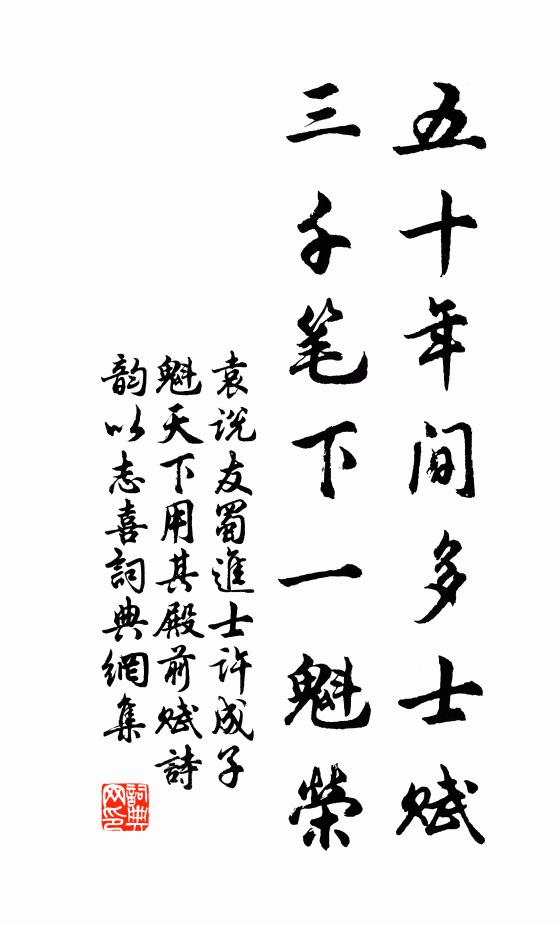 五十年间多士赋
三千笔下一魁荣
袁说友蜀進士许成子
魁天下用其殿前赋詩
韵以志喜詞典網集
詞典
网印